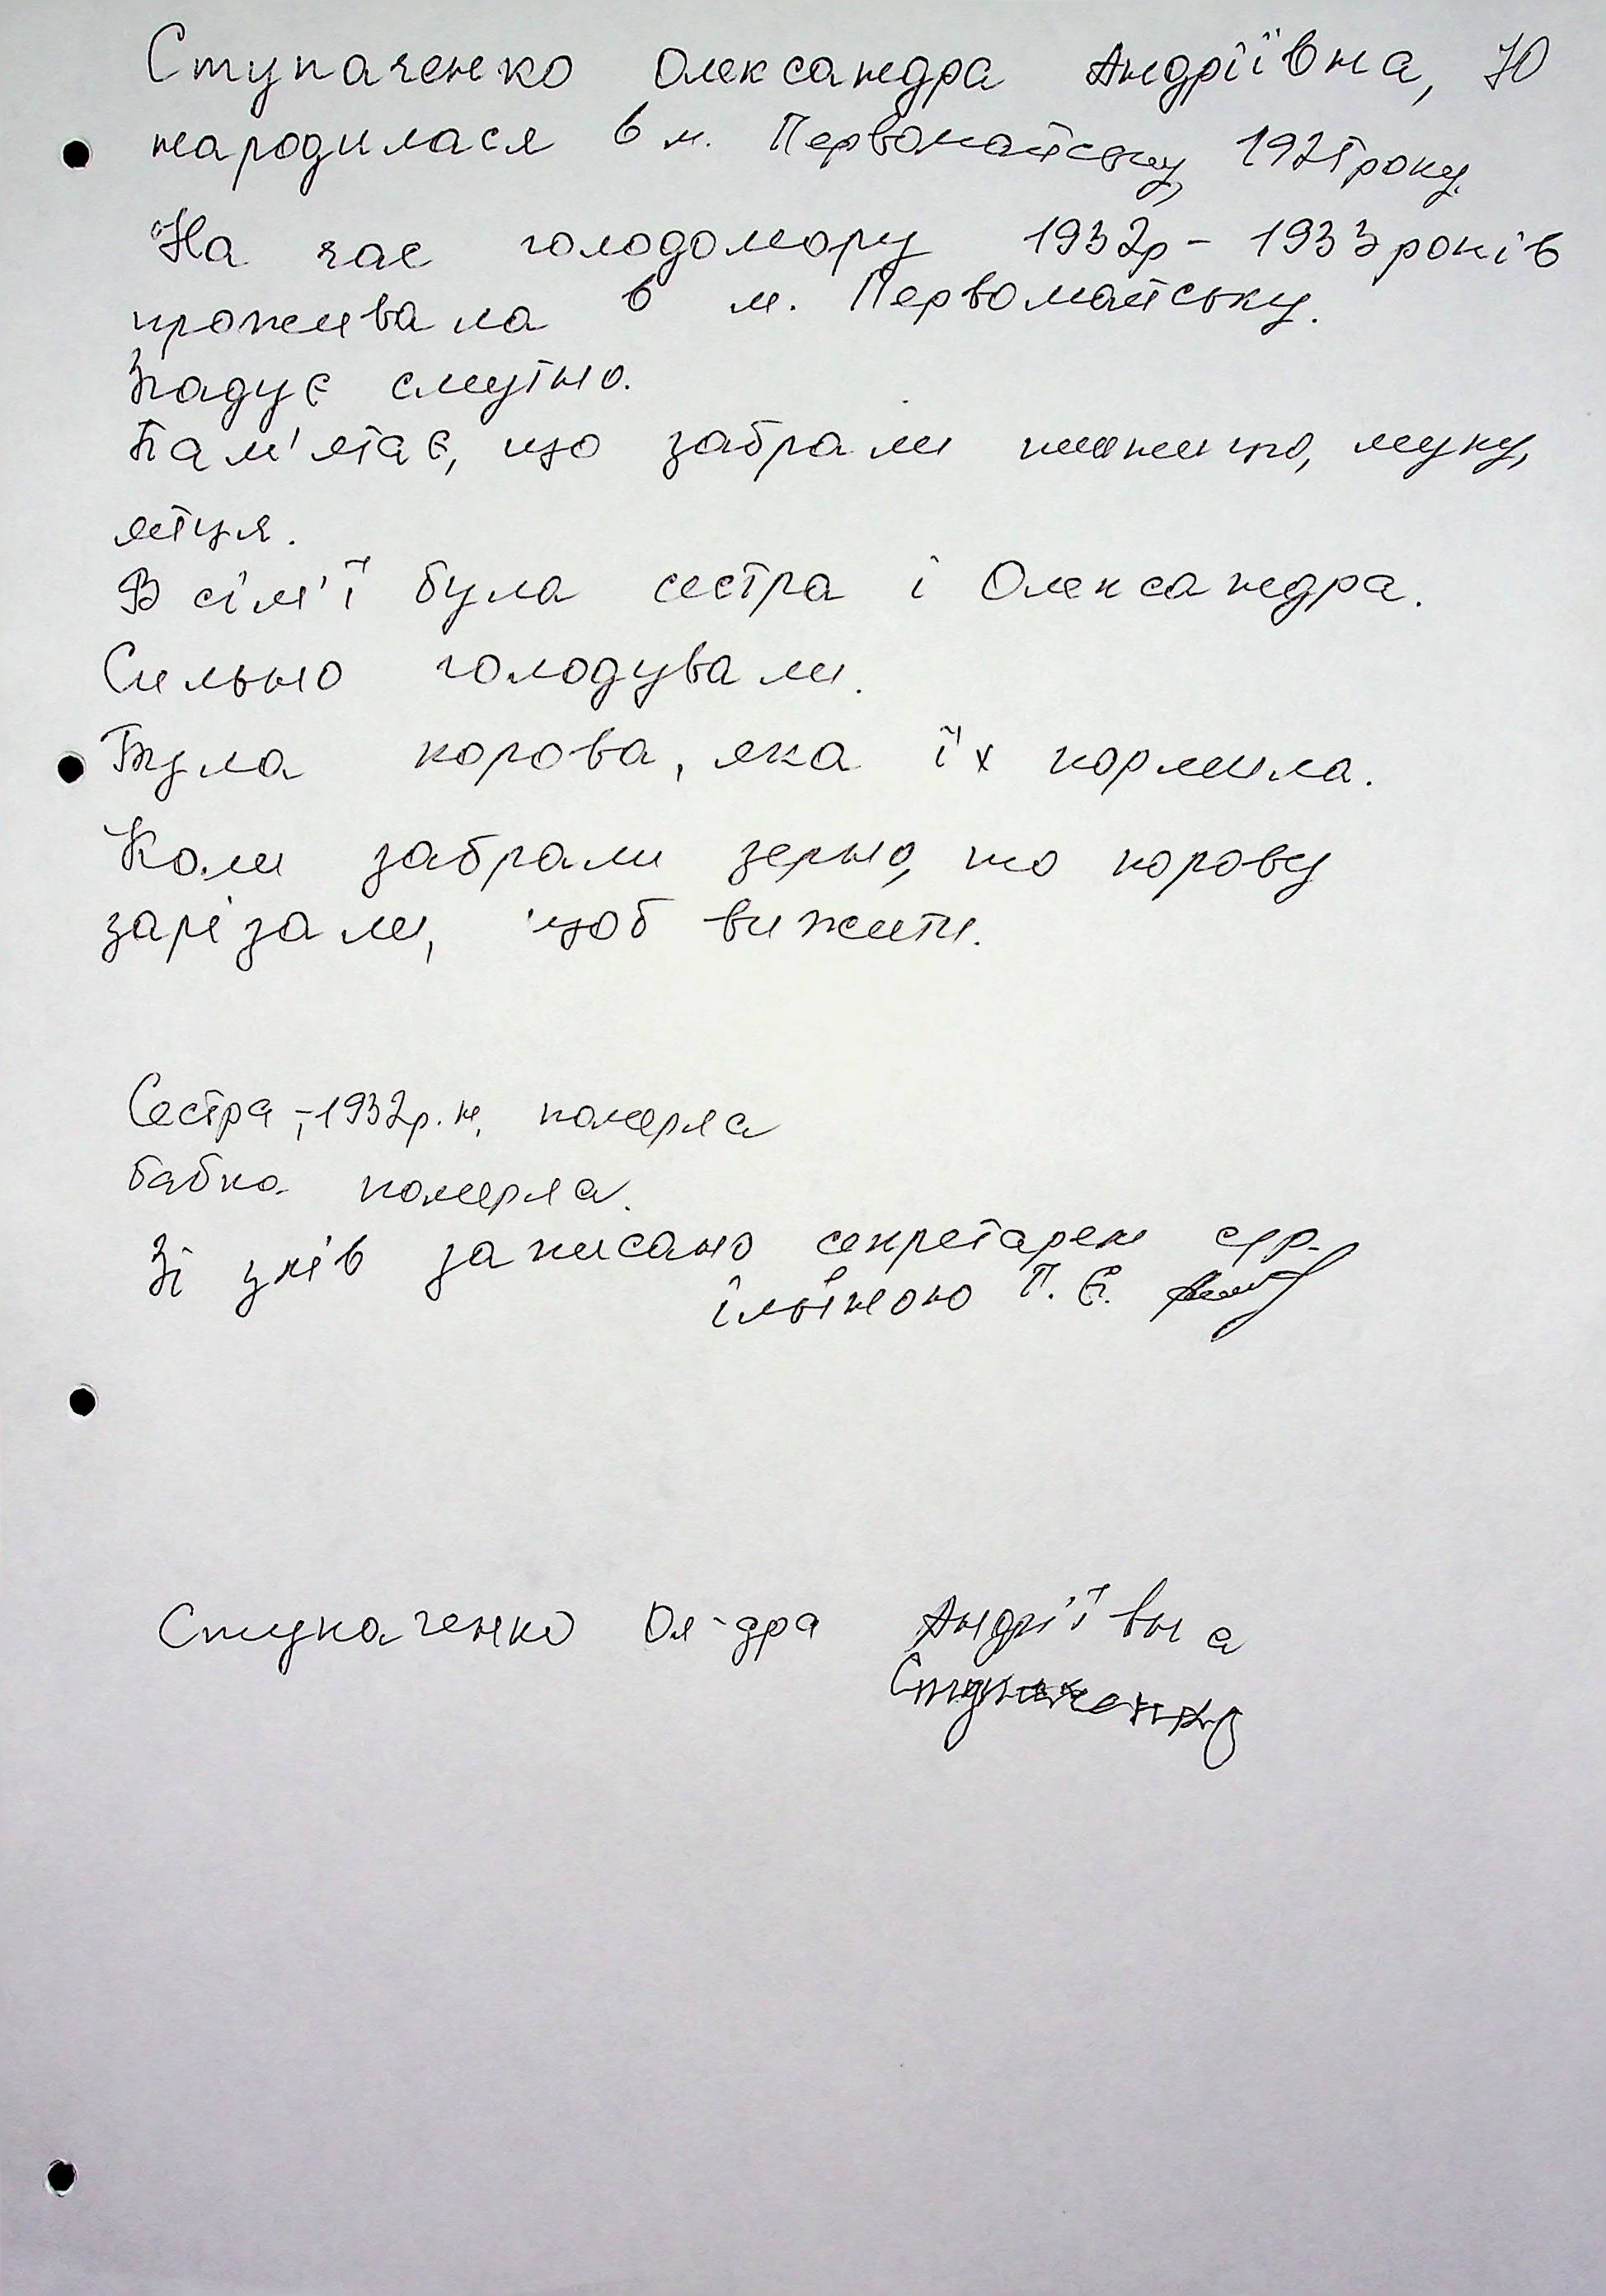 Ступаченко Олександра Андріївна, Ю
народилася в м. Первомайську, 1925 року.
На час голодомору 1932р - 1933 років
проживала в м. Первомайську.
Згадує смутно.
Пам'ятає, що забрали пшеницю, муку,
яйця.
В сім'ї була сестра і Олександра.
Сильно голодували.
Була корова, яка їх кормила.
Коли забрали зерно, то корову
зарізали, щоб вижити.
Сестра, - 1932р. н. померла
бабка померла.
Зі слів записано секретарем с/р.
Ільїною Т. Є.
Ступаченко Ол-дра Андріївна
Ступаченко